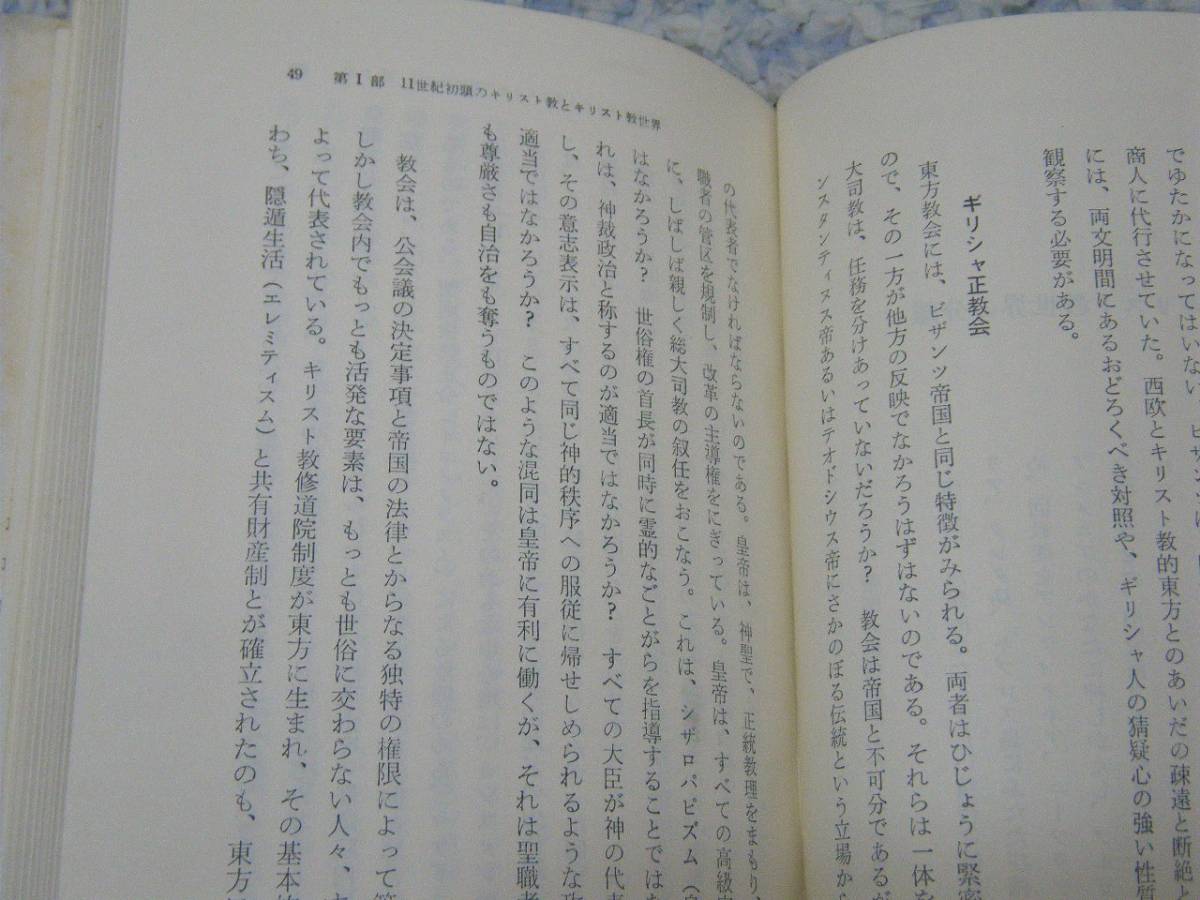 でゆたかになってはいない
商人に代行させていた。西欧とキリスト教的東方とのあいだの疎遠と断絶と
には、両文明間にあるおどろくべき対照や、ギリシャ人の猜疑心の強い性質
観察する必要がある。
ギリシャ正教会
東方教会には、ビザンツ帝国と同じ特徴がみられる。両者はひじょうに緊密
ので、その一方が他方の反映でなかろうはずはないのである。それらは一体を
大司教は、任務を分けあっていないだろうか? 教会は帝国と不可分であるが
ンスタンティヌス帝あるいはテオドシウス帝にさかのぼる伝統という立場から
49 第Ⅰ部 11世紀初頭のキリスト教とキリスト教世界
の代表者でなければならないのである。皇帝は、神聖で、正統教理をまもり、
職者の管区を規制し、改革の主導権をにぎっている。皇帝は、すべての高級
に、しばしば親しく総大司教の叙任をおこなう。これは、シザロパピズム(
はなかろうか? 世俗権の首長が同時に霊的なことがらを指導することでは
れは、神裁政治と称するのが適当ではなかろうか? すべての大臣が神の代表
し、その意志表示は、すべて同じ神的秩序への服従に帰せしめられるような
適当ではなかろうか? このような混同は皇帝に有利に働くが、それは聖職者
も尊厳さも自治をも奪うものではない。
教会は、公会議の決定事項と帝国の法律とからなる独特の権限によって
しかし教会内でもっとも活発な要素は、もっとも世俗に交わらない人々、
よって代表されている。キリスト教修道院制度が東方に生まれ、その基本的
わち、隠遁生活(エレミティスム)と共有財産制とが確立されたのも、東方